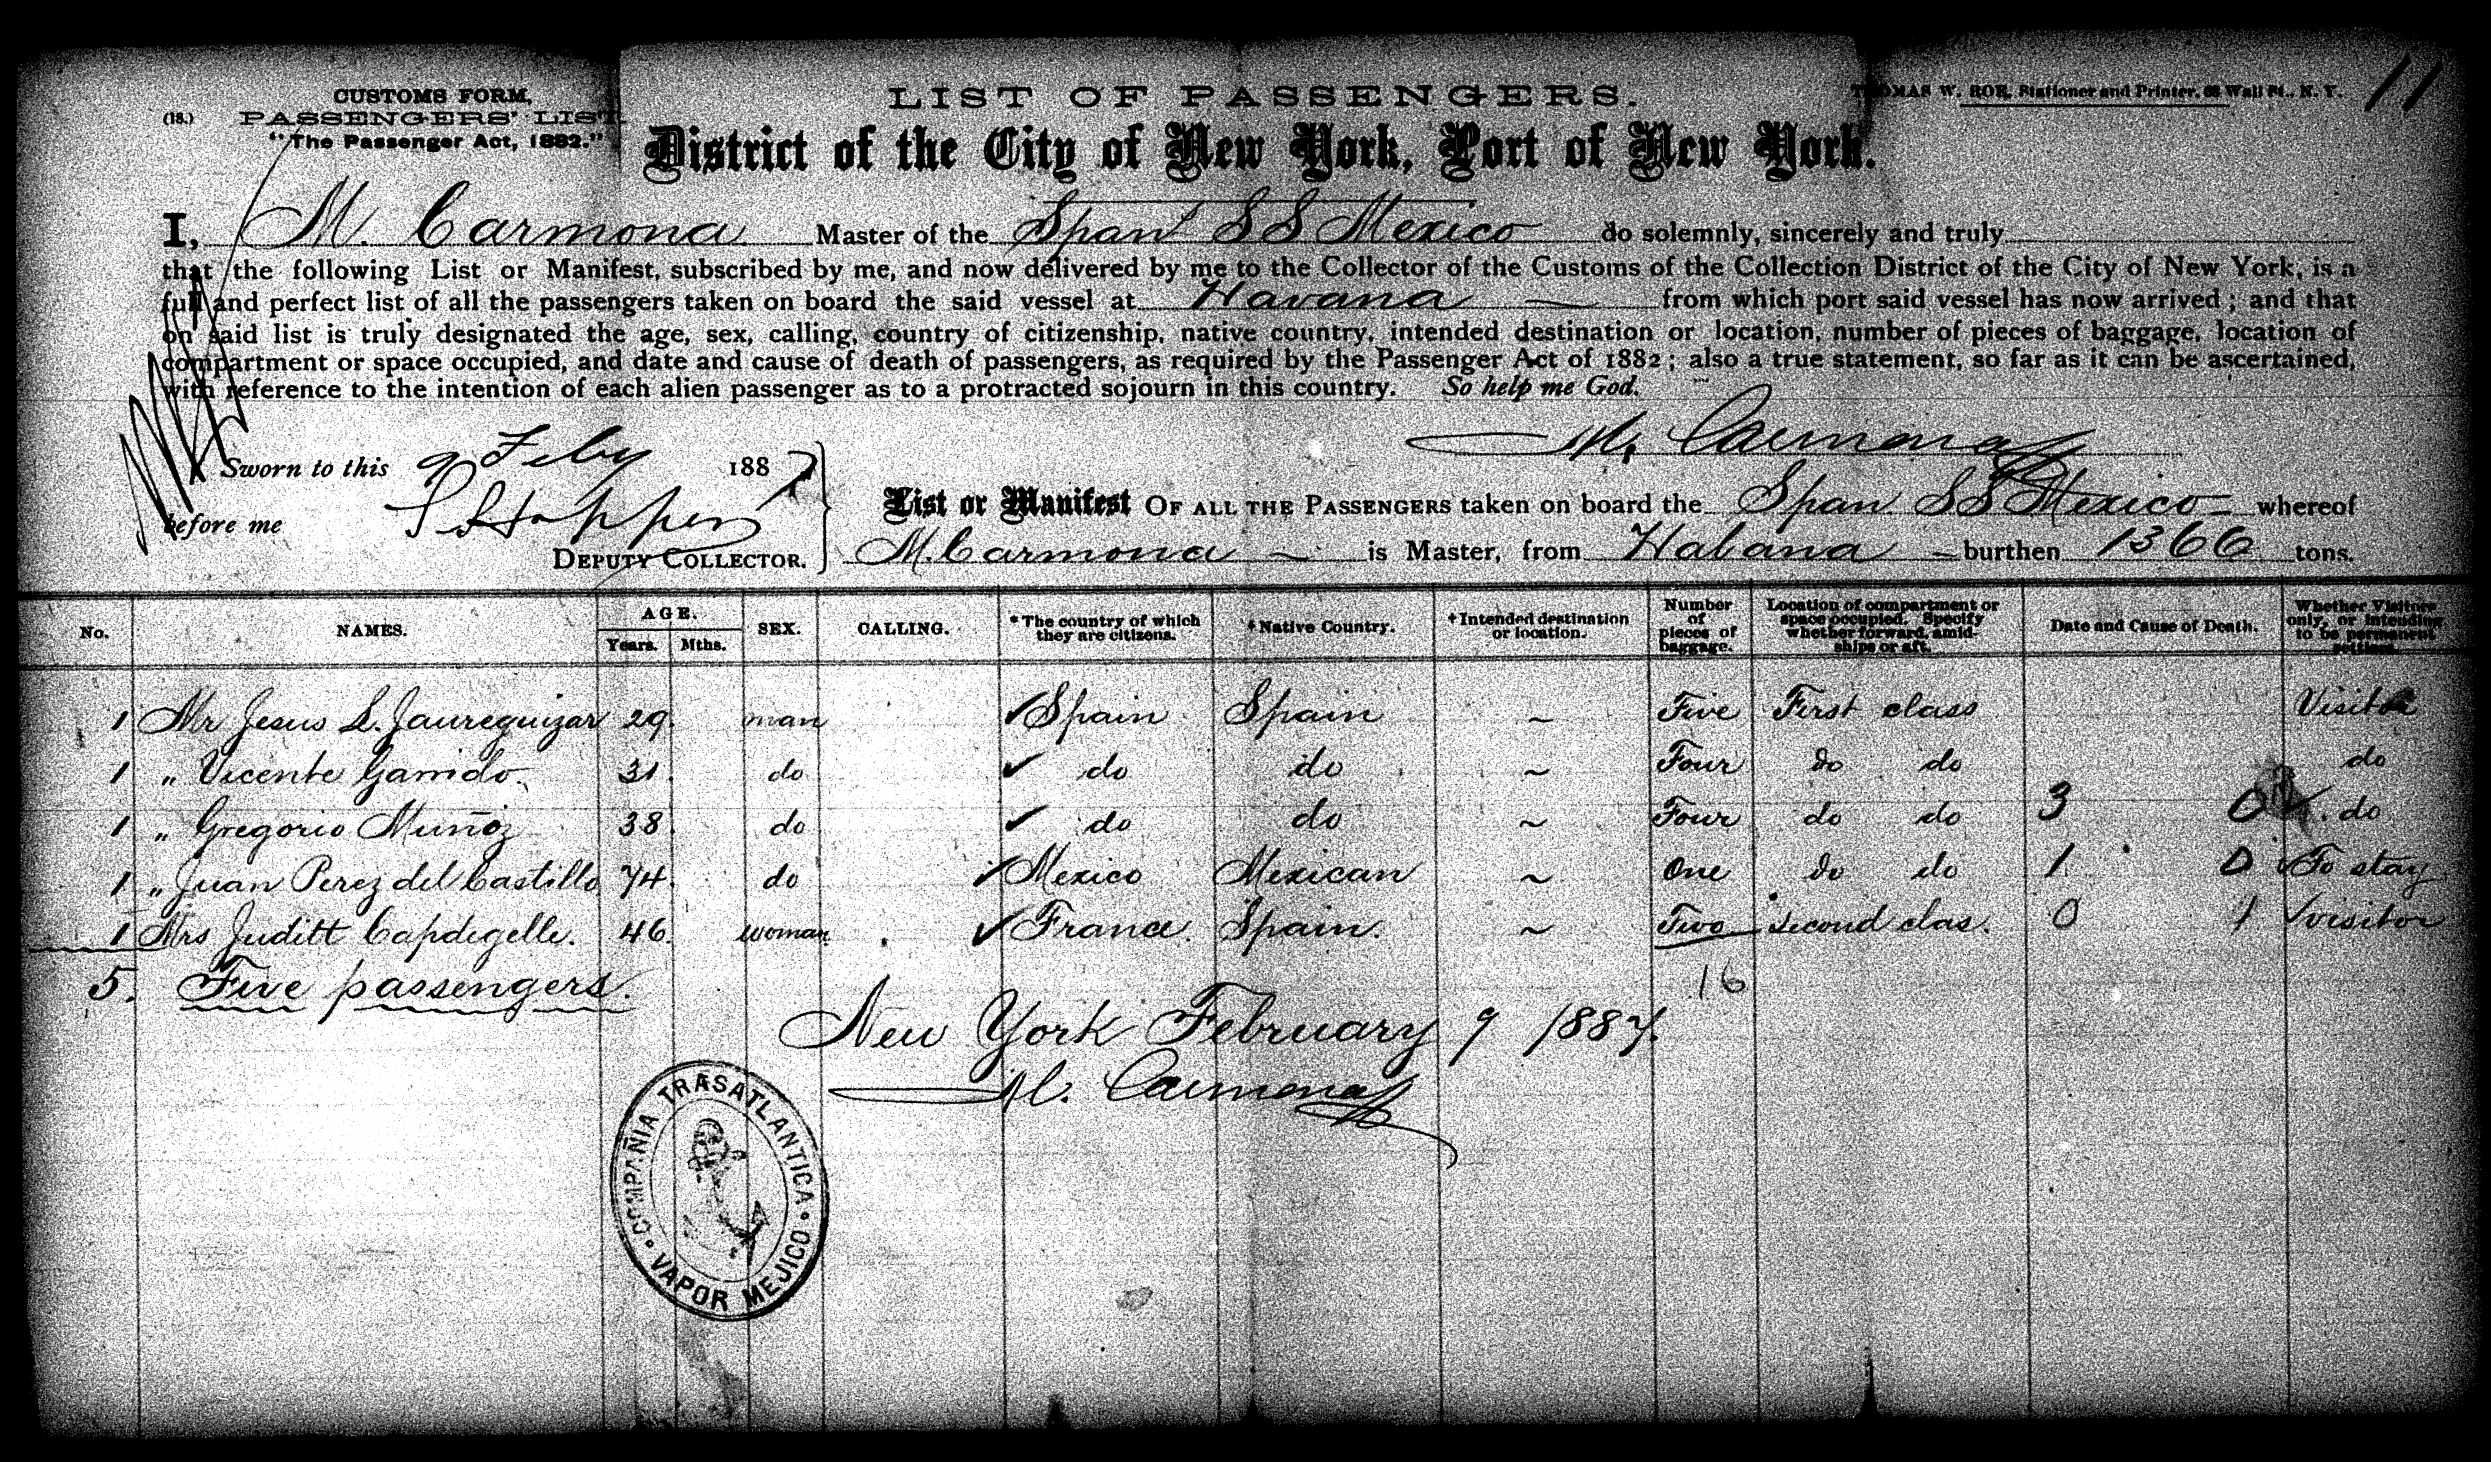 CUSTOMS FORM,
(18.) PASSENGERS' LIST.
"The Passenger Act, 1882."
LIST OF PASSENGERS.
THOMAS W. ROE, Stationer and Printer, Wall St., N. Y.
11
District of the City of New York, Port of New York.
I, M. Carmona Master of the Span SS Mexico do solemnly, sincerely and truly
that the following List or Manifest, subscribed by me, and now delivered by me to the Collector of the Customs of the Collection District of the City of New York, is a
full and perfect list of all the passengers taken on board the said vessel at Havana from which port said vessel has now arrived; and that
on said list is truly designated the age, sex, calling, country of citizenship, native country, intended destination or location, number of pieces of baggage, location of
compartment or space occupied, and date and cause of death of passengers, as required by the Passenger Act of 1882; also a true statement, so far as it can be ascertained,
with reference to the intention of each alien passenger as to a protracted sojourn in this country. So help me God.
M. Carmona
Sworn to this 9 Feby 1887
before me
DEPUTY COLLECTOR.
List or Manifest OF ALL THE PASSENGERS taken on board the Span SS Mexico whereof
M. Carmona is Master, from Habana burthen 1366 tons.
No. NAMES. AGE. Years. Mths. SEX. CALLING. *The country of which they are citizens. *Native Country. †Intended destination or location. Number of pieces of baggage. Location of compartment or space occupied. Specify whether forward, amidships or aft. Date and Cause of Death. Whether Visitors only, or intending to be permanent settlers.
1 Mr Jesus L. Jaureguizar 29. man Spain Spain ~ Five First class Visitor
1 " Vicente Garrido. 31. do do do ~ Four do do do
1 " Gregorio Muñoz 38. do do do ~ Four do do 3 0 do
1 " Juan Perez del Castillo 74. do Mexico Mexican ~ One do do 1 0 To stay
1 Mrs Juditt Capdegelle. 46. woman France. Spain. ~ Two second clas. 0 1 visitor
5. Five passengers. 16
New York February 9 1887.
M. Carmona
COMPAÑIA TRASATLANTICA • VAPOR MEJICO •